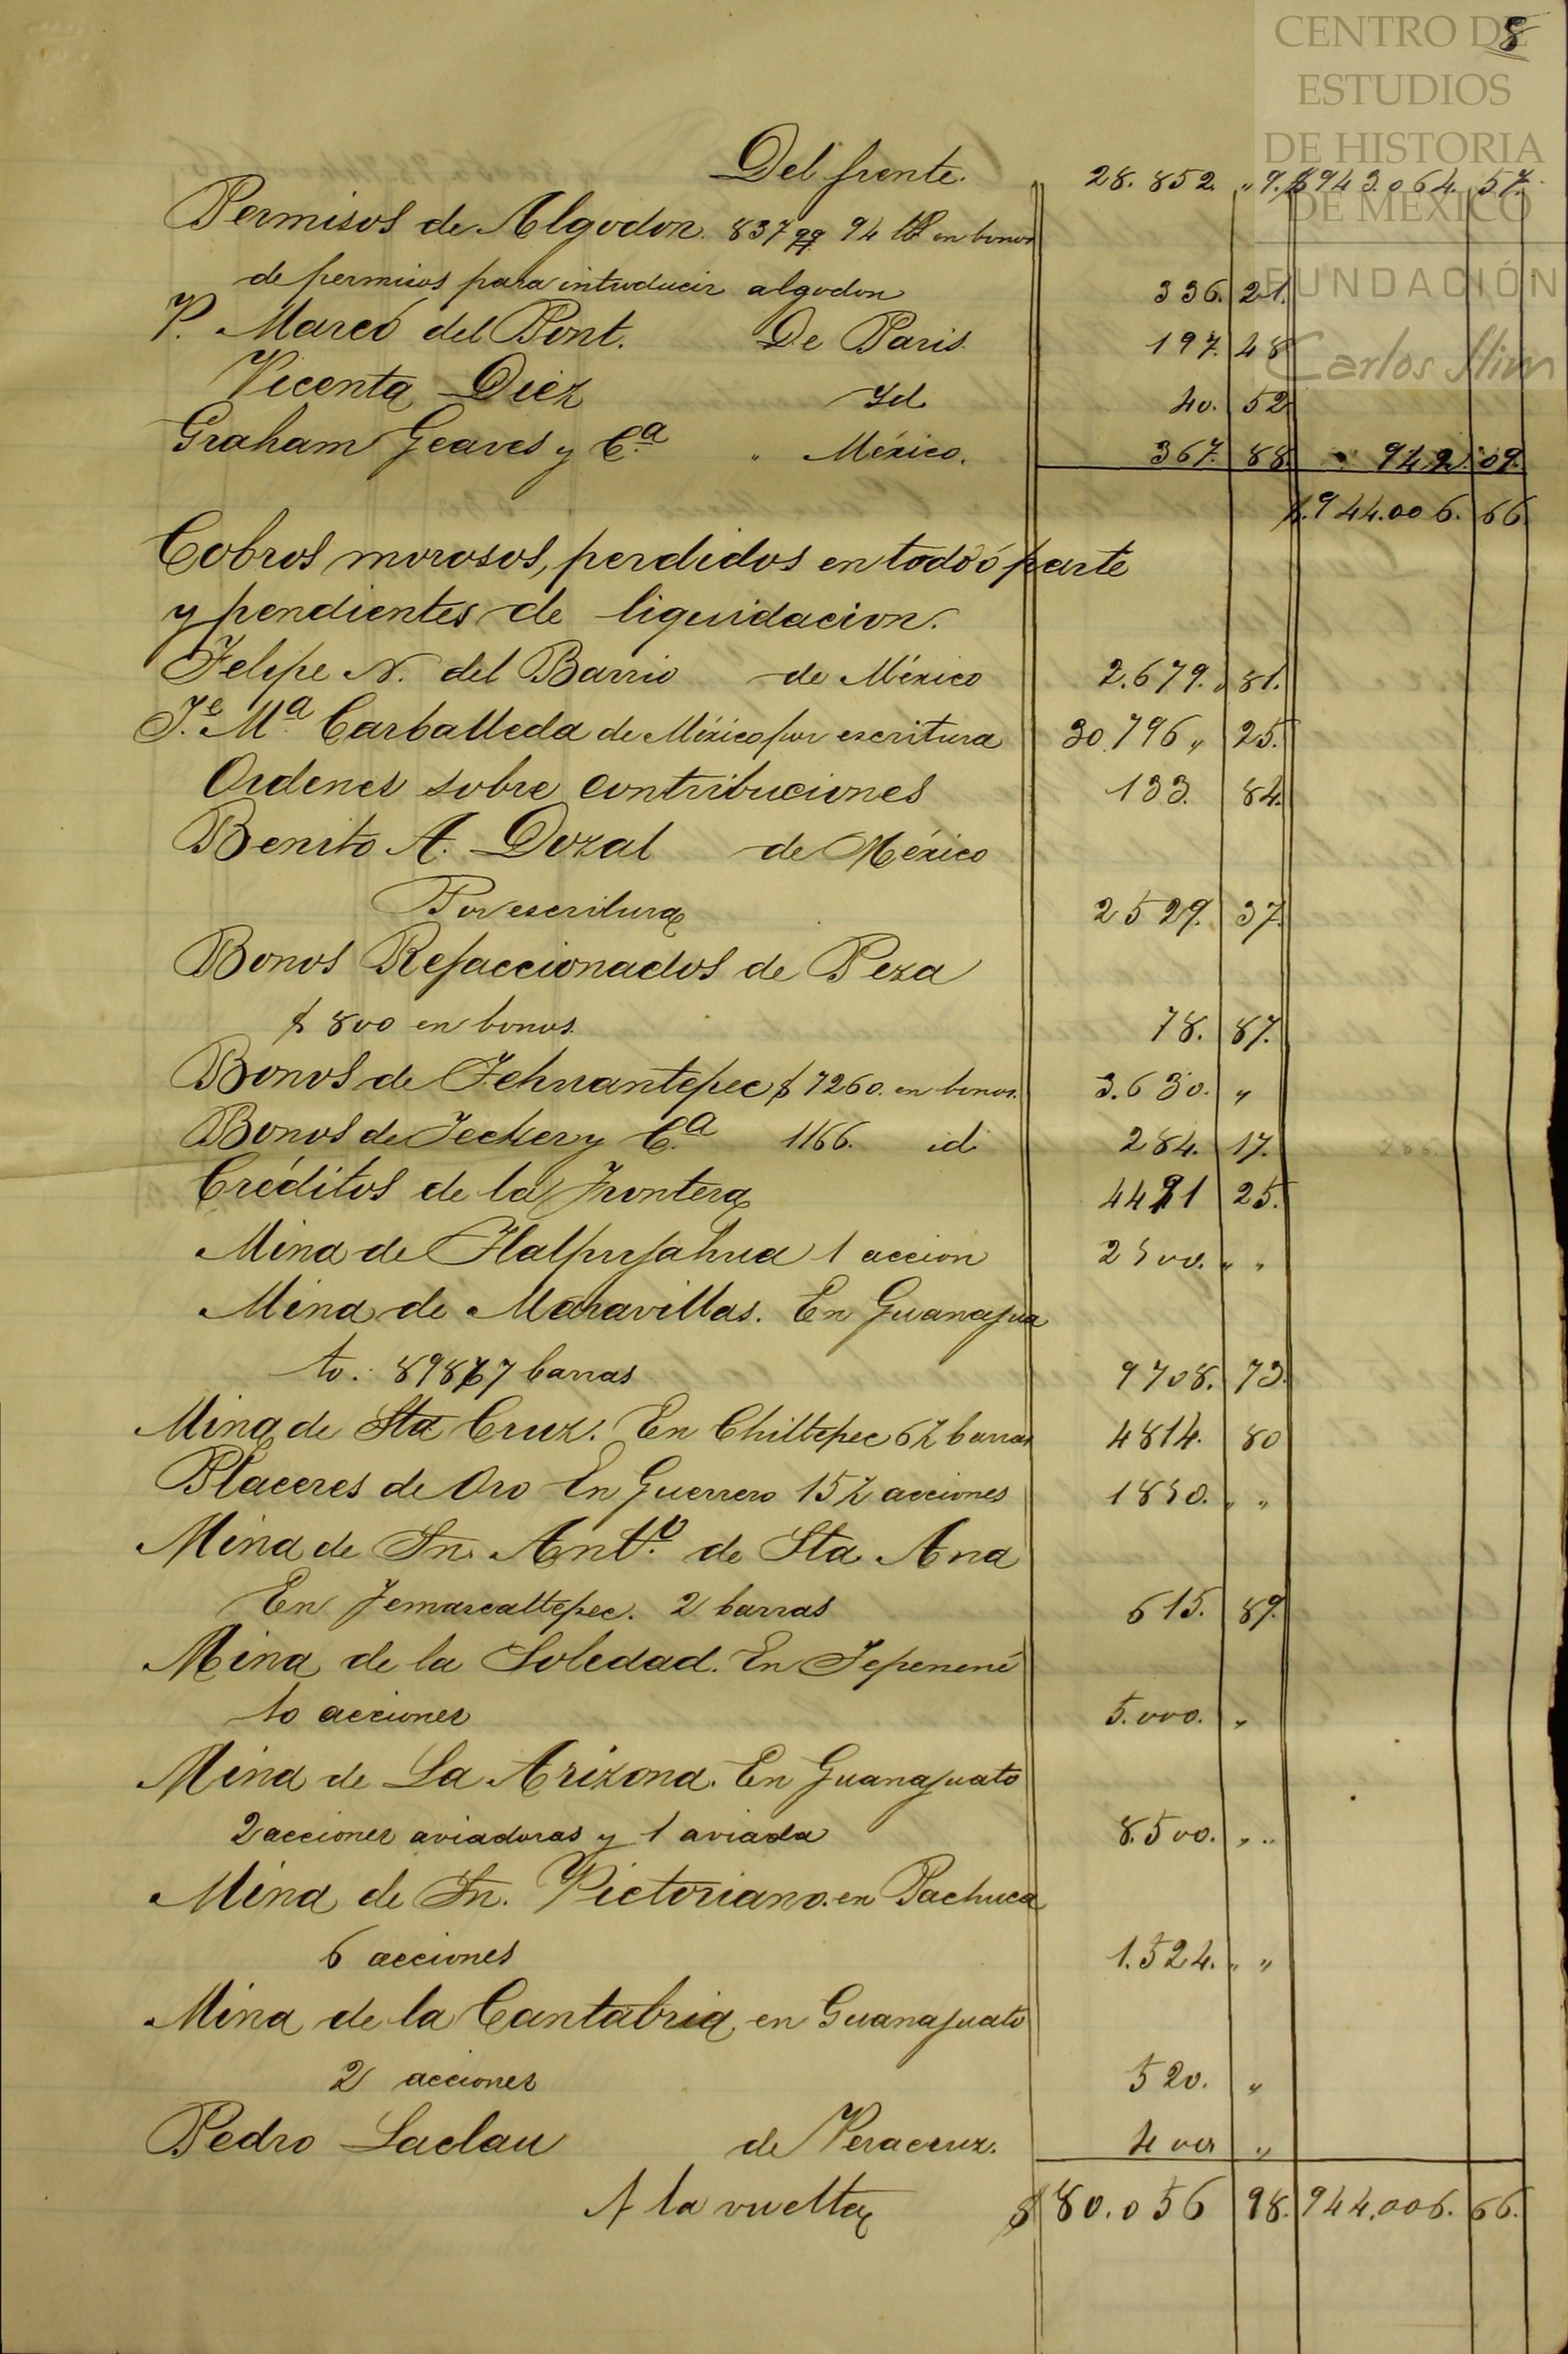 CENTRO DE
ESTUDIOS
DE HISTORIA
DE MEXICO
FUNDACIÓN
Carlos Slim
8
Del frente. 28.852. „ 9. $943.064. 57.
Permisos de Algodon. 837 qq 94 lb en bonos
de permisos para introducir algodon 336. 21.
P. Marcó del Pont. De Paris 197. 48
Vicenta Diez Id. 40. 52
Graham Geaves y Cª. „ México. 367. 88. 942. 09.
$.944.006. 66
Cobros morosos, perdidos en todo ó parte
y pendientes de liquidacion.
Felipe N. del Barrio de México 2.679. „ 81.
Je. Mª. Carballeda de México por escritura 30.796 „ 25.
Ordenes sobre contribuciones 133. 84.
Benito A. Dozal de México
Por escritura 2529. 37.
Bonos Refaccionados de Peza
$ 800 en bonos. 78. 87.
Bonos de Tehuantepec $ 7260. en bonos. 3.630. „
Bonos de Jecker y Cª. 1166. id. 284. 17.
Créditos de la Frontera 4421 25.
Mina de Tlalpujahua 1 accion 2500. „ „
Mina de Maravillas. En Guanajua
to. barras 9708. 73.
Mina de Sta Cruz. En Chiltepec 6½ barras 4814. 80
Placeres de Oro En Guerrero 15½ acciones 1850. „ „
Mina de Sn. Antº. de Sta Ana
En Temascaltepec. 2 barras 615. 89.
Mina de la Soledad. En Tepenené
10 acciones 5.000. „
Mina de La Arizona. En Guanajuato
2 acciones aviadoras y 1 aviada 8.500. „ „
Mina de Sn. Victoriano. en Pachuca
6 acciones 1.524. „ „
Mina de la Cantabria en Guanajuato
2 acciones 520. „
Pedro Laclau de Veracruz. 4 „
A la vuelta $ 80.056 98. 944.006. 66.